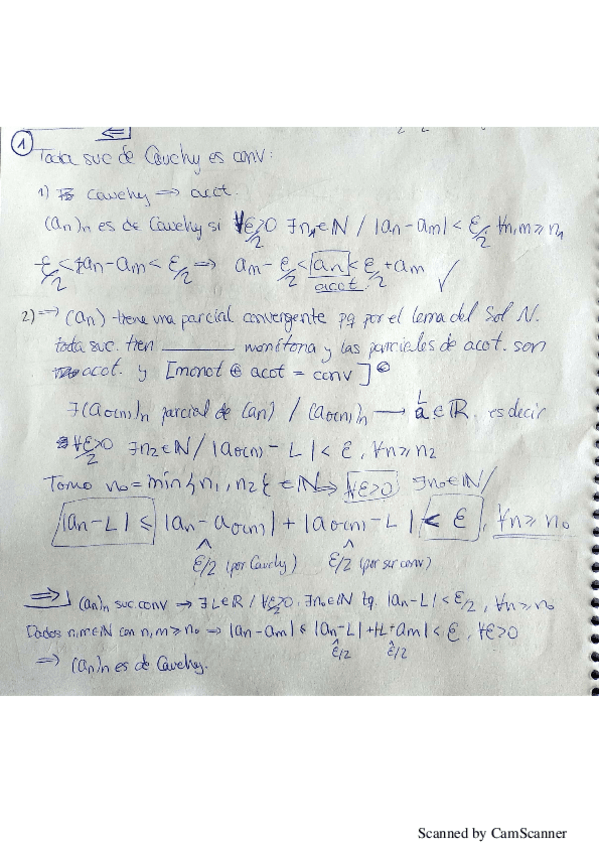 ① ⇐
Toda suc de Cauchy es conv:
1) cauchy ⟹ acot.
(an)n es de Cauchy si ∀ε/2>0 ∃n₁∈ℕ / |an-am|<ε/2, ∀n,m≥n₁
-ε/2<an-am<ε/2 ⟹ am-ε/2<an<ε/2+am ✓
acot.
2) ⟹ (an) tiene una parcial convergente pq por el lema del Sol N.
toda suc. tien ______ monótona y las parciales de acot. son
acot. y [monot ⊕ acot = conv]
∃(aσ(n))n parcial de (an) / (aσ(n))n ⟶ L ∈ℝ. es decir
∀ε/2>0 ∃n₂∈ℕ / |aσ(n)-L|<ε, ∀n≥n₂
Tomo n₀=min{n₁,n₂} ∈ℕ ⟹ ∀ε>0 ∃n₀∈ℕ/
|an-L| ≤ |an-aσ(n)|+|aσ(n)-L| < ε, ∀n≥n₀
ε/2 (por Cauchy) ε/2 (por ser conv)
⟹ (an)n suc. conv ⟹ ∃L∈ℝ / ∀ε/2>0, ∃n₀∈ℕ tq. |an-L|<ε/2, ∀n≥n₀
Dados n,m∈ℕ con n,m≥n₀ ⟹ |an-am| ≤ |an-L|+|L-am|<ε, ∀ε>0
ε/2 ε/2
⟹ (an)n es de Cauchy.
Scanned by CamScanner